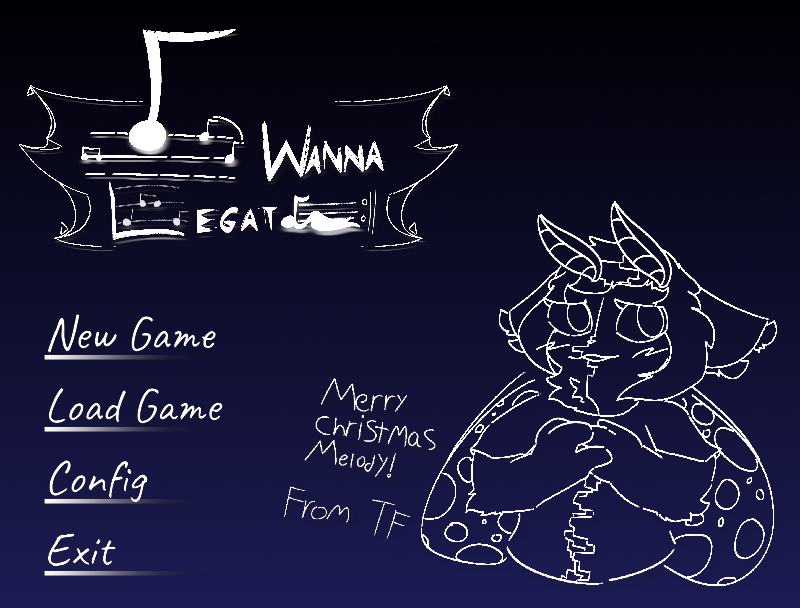 I WANNA
LEGATO
New Game
Load Game
Config
Exit
Merry
Christmas
Melody!
From TF